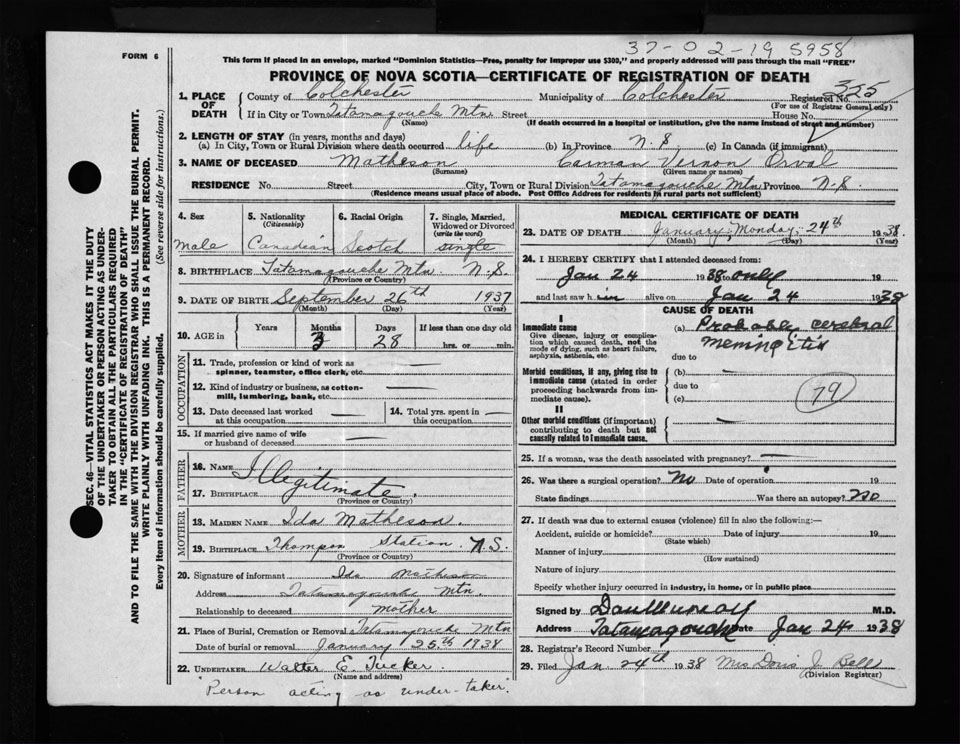 37-02-19 5958
FORM 6
This form if placed in an envelope, marked "Dominion Statistics—Free, penalty for improper use $300," and properly addressed will pass through the mail "FREE"
PROVINCE OF NOVA SCOTIA—CERTIFICATE OF REGISTRATION OF DEATH
325
1. PLACE OF DEATH County of Colchester Municipality of Colchester Registered No.
(For use of Registrar General only)
If in City or Town Tatamagouche Mtn. Street House No.
(Name) (If death occurred in a hospital or institution, give the name instead of street and number)
2. LENGTH OF STAY (in years, months and days)
(a) In City, Town or Rural Division where death occurred life (b) In Province N.S (c) In Canada (if immigrant)
3. NAME OF DECEASED Matheson Carman Vernon Orval
(Surname) (Given name or names)
RESIDENCE No. Street City, Town or Rural Division Tatamagouche Mtn Province N.S.
(Residence means usual place of abode. Post Office Address for residents in rural parts not sufficient)
4. Sex
male
5. Nationality
(Citizenship)
Canadian
6. Racial Origin
Scotch
7. Single, Married, Widowed or Divorced
(write the word)
single
8. BIRTHPLACE Tatamagouche Mtn. N.S.
(Province or Country)
9. DATE OF BIRTH September 26th 1937
(Month) (Day) (Year)
10. AGE in Years Months Days If less than one day old
3 28 hrs. or min.
OCCUPATION
11. Trade, profession or kind of work as spinner, teamster, office clerk, etc. —
12. Kind of industry or business, as cotton-mill, lumbering, bank, etc. —
13. Date deceased last worked at this occupation —
14. Total yrs. spent in this occupation —
15. If married give name of wife or husband of deceased —
FATHER
16. NAME Illegitimate.
17. BIRTHPLACE
(Province or Country)
MOTHER
18. MAIDEN NAME Ida Matheson.
19. BIRTHPLACE Thompson Station N.S.
(Province or Country)
20. Signature of informant Ida Matheson
Address Tatamagouche Mtn.
Relationship to deceased mother
21. Place of Burial, Cremation or Removal Tatamagouche Mtn
Date of burial or removal January 25th 1938
22. UNDERTAKER Walter E. Tucker.
(Name and address)
"Person acting as under-taker."
MEDICAL CERTIFICATE OF DEATH
23. DATE OF DEATH January Monday 24th 1938.
(Month) (Day) (Year)
24. I HEREBY CERTIFY that I attended deceased from:
Jan 24 1938 to only 19
and last saw him alive on Jan 24 1938
CAUSE OF DEATH
I
Immediate cause
Give disease, injury or complication which caused death, not the mode of dying, such as heart failure, asphyxia, asthenia, etc.
(a) Probably cerebral meningitis
due to
Morbid conditions, if any, giving rise to immediate cause (stated in order proceeding backwards from immediate cause).
(b) —
due to
(c)
79
II
Other morbid conditions (if important) contributing to death but not causally related to immediate cause.
25. If a woman, was the death associated with pregnancy? —
26. Was there a surgical operation? No Date of operation 19
State findings Was there an autopsy? No
27. If death was due to external causes (violence) fill in also the following:—
Accident, suicide or homicide? Date of injury 19
(State which)
Manner of injury
(How sustained)
Nature of injury
Specify whether injury occurred in industry, in home, or in public place
Signed by Dan Murray M.D.
Address Tatamagouche Date Jan 24 1938
28. Registrar's Record Number
29. Filed Jan. 24th 1938 Mrs Doris J. Bell
(Division Registrar)
SEC. 46—VITAL STATISTICS ACT MAKES IT THE DUTY
OF THE UNDERTAKER OR PERSON ACTING AS UNDER-
TAKER TO OBTAIN ALL THE PARTICULARS REQUIRED
IN THE "CERTIFICATE OF REGISTRATION OF DEATH"
AND TO FILE THE SAME WITH THE DIVISION REGISTRAR WHO SHALL ISSUE THE BURIAL PERMIT.
WRITE PLAINLY WITH UNFADING INK. THIS IS A PERMANENT RECORD.
Every item of information should be carefully supplied. (See reverse side for instructions.)